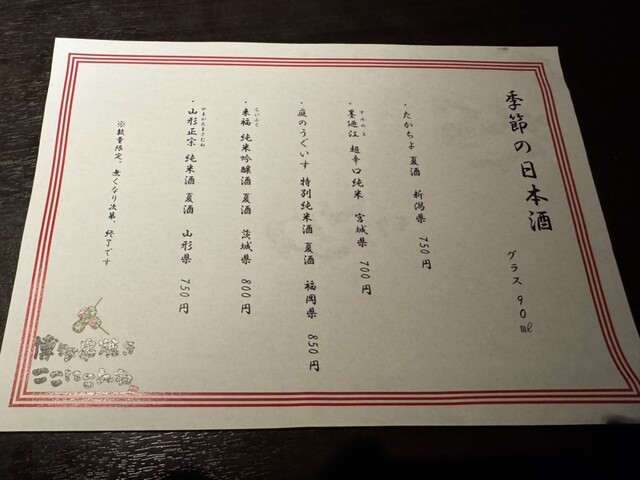 季節の日本酒
グラス 90㎖
・たかちよ 夏酒 新潟県 750円
・墨廼江 超辛口純米 宮城県 700円
すみのえ
・庭のうぐいす 特別純米酒 夏酒 福岡県 850円
・来福 純米吟醸酒 夏酒 茨城県 800円
らいふく
・山形正宗 純米酒 夏酒 山形県 750円
やまがたまさむね
※数量限定、無くなり次第、終了です